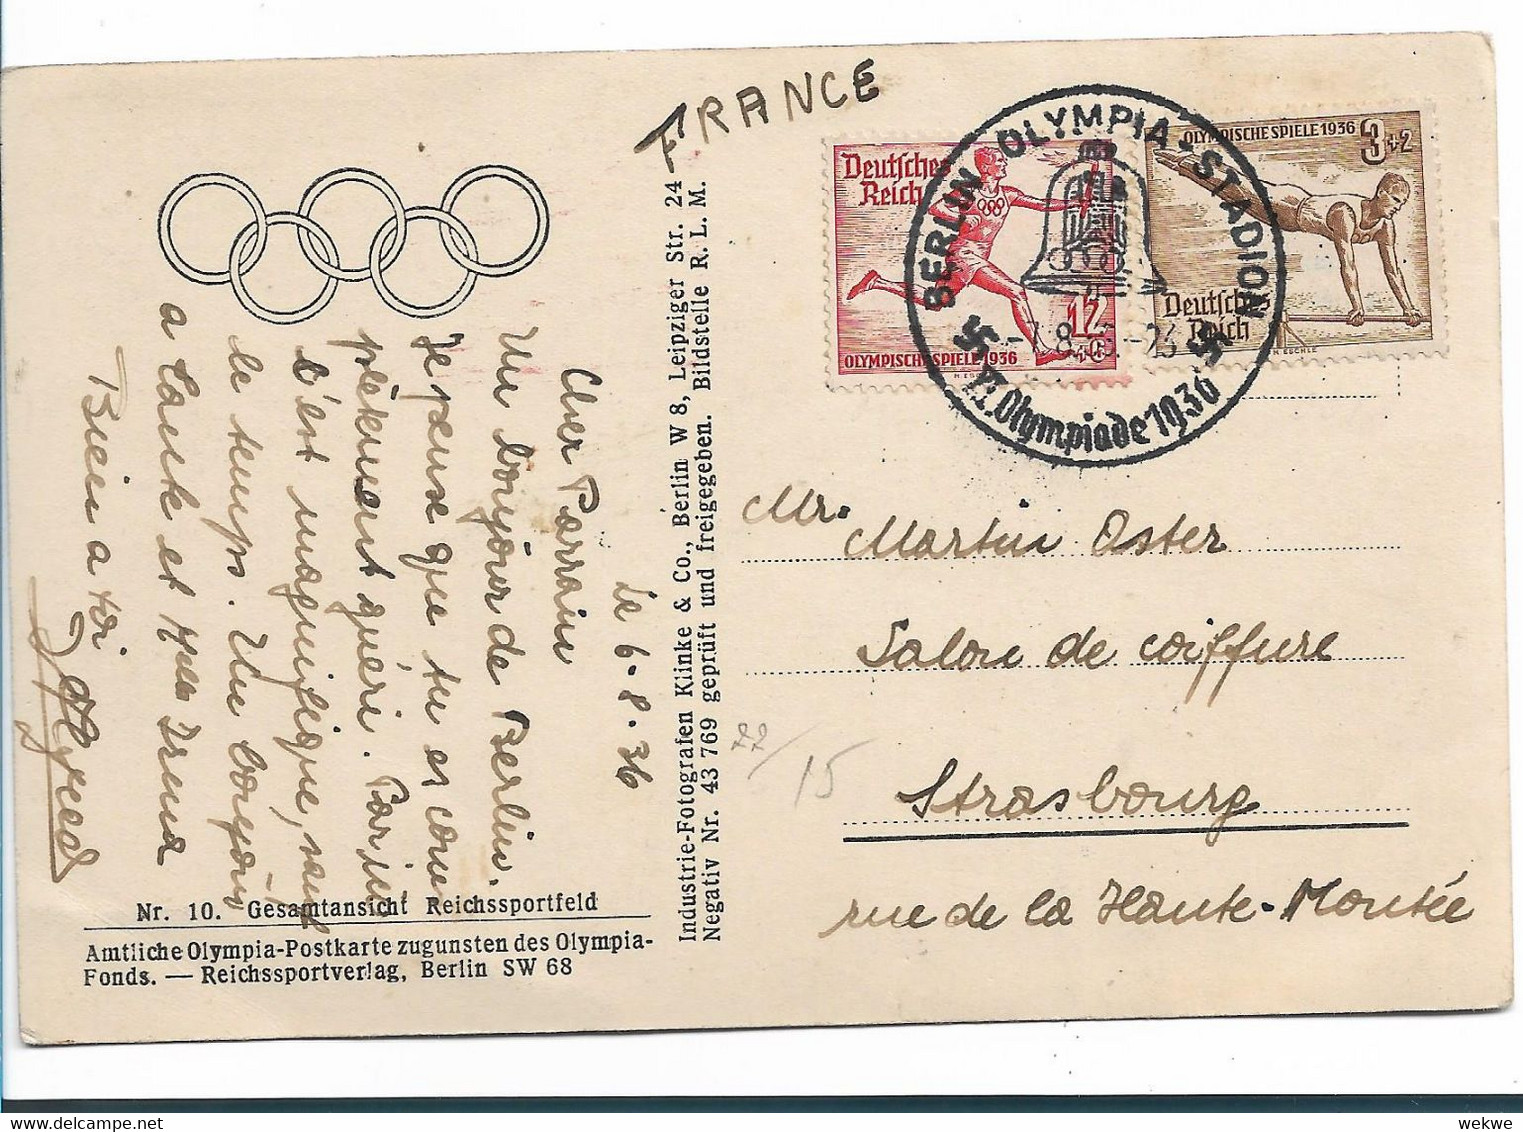 FRANCE
Deutsches
Reich
12
OLYMPISCHE SPIELE 1936
OLYMPISCHE SPIELE 1936 3+2
Deutsches
Reich
H. ESCHLE
BERLIN OLYMPIA-STADION
XI. Olympiade 1936
Le 6.8.36
Cher Parrain
Un bonjour de Berlin.
Je pense que tu es
guéri.
c'est magnifique, sauf
le temps. Un bonjour
a tante et Irma
Bien a toi
Alfred
Nr. 10. Gesamtansicht Reichssportfeld
Amtliche Olympia-Postkarte zugunsten des Olympia-
Fonds. — Reichssportverlag, Berlin SW 68
Industrie-Fotografen Klinke & Co., Berlin W 8, Leipziger Str. 24
Negativ Nr. 43 769 geprüft und freigegeben. Bildstelle R. L. M.
Mr. Martin Oster
Salon de coiffure
Strasbourg
rue de la Haute-Montée
22/15
wekwe